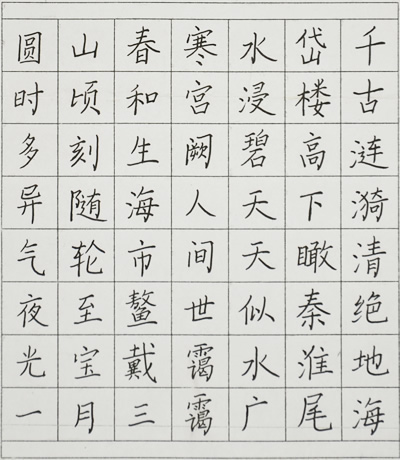 千古涟漪清绝地海
岱楼高下瞰秦淮尾
水浸碧天天似水广
寒宫阙人间世霭霭
春和生海市鳌戴三
山顷刻随轮至宝月
圆时多异气夜光一